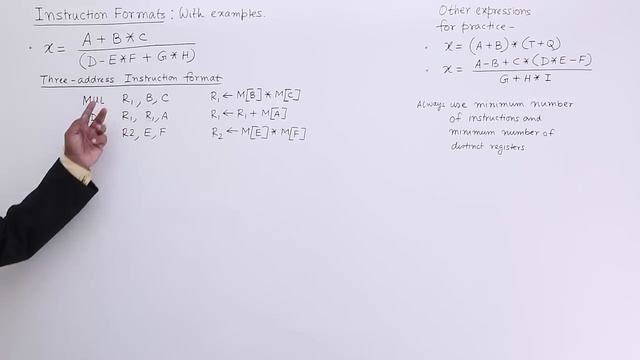 Instruction Formats : With examples.
• x = A + B * C / (D - E * F + G * H)
Three-address Instruction format
MUL R1, B, C R1 ← M[B] * M[C]
R1, R1, A R1 ← R1 + M[A]
R2, E, F R2 ← M[E] * M[F]
Other expressions
for practice -
• x = (A+B) * (T+Q)
• x = A-B+C*(D*E-F) / G+H*I
Always use minimum number
of instructions and
minimum number of
distinct registers